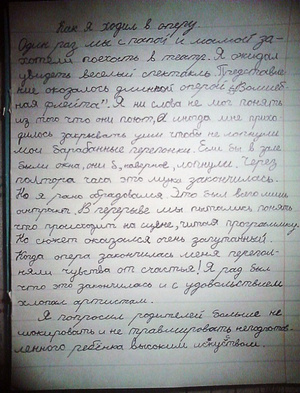 Как я ходил в оперу.
Один раз мы с папой и мамой за-
хотели поехать в театр. Я ожидал
увидеть весёлый спектакль. Представле-
ние оказалось длинной оперой „Волшеб-
ная флейта". Я ни слова не мог понять
из того что они поют. А иногда мне прихо-
дилось закрывать уши чтобы не лопнули
мои барабанные перепонки. Если бы в зале
были окна, они б, наверное, лопнули. Через
полтора часа эта мука закончилась.
Но я рано обрадовался. Это был всего лишь
антракт. В перерыве мы пытались понять
что происходит на сцене, читая программку.
Но сюжет оказался очень запутанный.
Когда опера закончилась меня перепол-
няли чувства от счастья! Я рад был
что это закончилась и с удовольствием
хлопал артистам.
Я попросил родителей больше не
шокировать и не травмировать неподготов-
ленного ребёнка высоким искуством.